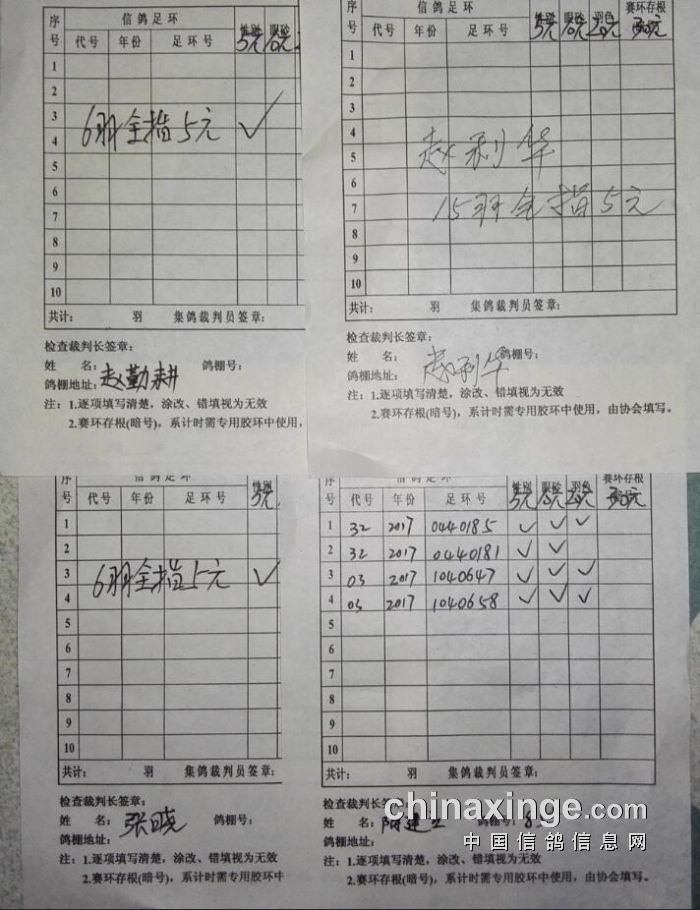 序号 信鸽足环
代号 年份 足环号
5元 元
1
2
3
4
5
6
7
8
9
10
6羽全指5元 ✓
共计: 羽 集鸽裁判员签章:
检查裁判长签章:
姓 名: 赵勤耕 鸽棚号:
鸽棚地址:
注: 1.逐项填写清楚, 涂改、错填视为无效
2.赛环存根(暗号), 系计时需专用胶环中使用,
序号 信鸽足环 赛环存根
代号 年份 足环号
5元 10元 20元 元
1
2
3
4
5
6
7
8
9
10
赵利华
15羽全指5元
共计: 羽 集鸽裁判员签章:
检查裁判长签章:
姓 名: 赵利华 鸽棚号:
鸽棚地址:
注: 1.逐项填写清楚, 涂改、错填视为无效
2.赛环存根(暗号), 系计时需专用胶环中使用, 由协会填写。
序号 信鸽足环
代号 年份 足环号
5元
1
2
3
4
5
6
7
8
9
10
6羽全指5元 ✓
共计: 羽 集鸽裁判员签章:
检查裁判长签章:
姓 名: 张晓 鸽棚号:
鸽棚地址:
注: 1.逐项填写清楚, 涂改、错填视为无效
2.赛环存根(暗号), 系计时需专用胶环中
序号 信鸽足环 赛环存根
代号 年份 足环号 5元 10元 20元 元
1 32 2017 0440185 ✓ ✓ ✓
2 32 2017 0440181 ✓ ✓
3 03 2017 1040647 ✓ ✓ ✓
4 03 2017 1040658 ✓ ✓ ✓
5
6
7
8
9
10
共计: 羽 集鸽裁判员签章:
检查裁判长签章:
姓 名: 建 鸽棚号:
鸽棚地址:
注: 1.逐项填写清楚, 涂改、错填视为无效
2.赛环存根(暗号), 系计时需专用胶环中使用, 由协会填写。
chinaxinge.com
中国信鸽信息网